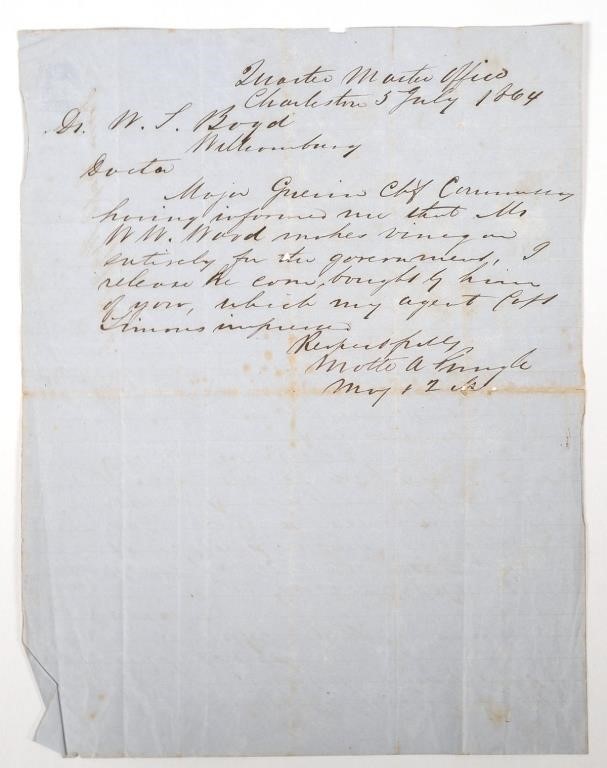 Quarter Master Office
Charleston 5 July 1864
Dr. W. S. Boyd
Williamsburg
Doctor
Major Chf Commissary
having informed me that Mr
W W. Wood makes vinegar
entirely for the government, I
release the corn, bought by him
of you, which my agent Capt
Simons impressed
Respectfully
Motte A Pringle
Maj & Q M